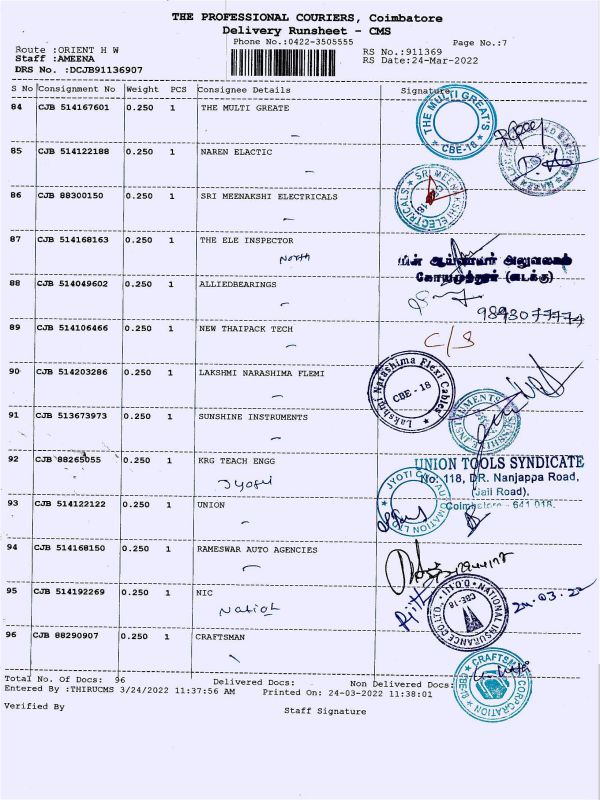 THE PROFESSIONAL COURIERS, Coimbatore
Delivery Runsheet - CMS
Phone No.:0422-3505555 Page No.:7
Route :ORIENT H W RS No.:911369
Staff :AMEENA RS Date:24-Mar-2022
DRS No. :DCJB91136907
S No Consignment No Weight PCS Consignee Details Signature
84 CJB 514167601 0.250 1 THE MULTI GREATE
THE MULTI GREAT'S
CBE-18
85 CJB 514122188 0.250 1 NAREN ELACTIC
86 CJB 88300150 0.250 1 SRI MEENAKSHI ELECTRICALS
SRI MEENAKSHI ELECTRICALS
87 CJB 514168163 0.250 1 THE ELE INSPECTOR
North
மின் ஆய்வாளர் அலுவலகம்
கோயமுத்தூர் (வடக்கு)
88 CJB 514049602 0.250 1 ALLIEDBEARINGS
89 CJB 514106466 0.250 1 NEW THAIPACK TECH
C/S
90 CJB 514203286 0.250 1 LAKSHMI NARASHIMA FLEMI
Lakshmi Narashima Flexi Cables
CBE - 18
91 CJB 513673973 0.250 1 SUNSHINE INSTRUMENTS
92 CJB 88265055 0.250 1 KRG TEACH ENGG
UNION TOOLS SYNDICATE
No: 118, DR. Nanjappa Road,
(Jail Road),
Coimbatore - 641 018.
93 CJB 514122122 0.250 1 UNION
94 CJB 514168150 0.250 1 RAMESWAR AUTO AGENCIES
95 CJB 514192269 0.250 1 NIC
NATIONAL INSURANCE CO.LTD.
CBE-18
24.03.22
96 CJB 88290907 0.250 1 CRAFTSMAN
CRAFTSMAN CORPORATION
Total No. Of Docs: 96 Delivered Docs: Non Delivered Docs:
Entered By :THIRUCMS 3/24/2022 11:37:56 AM Printed On: 24-03-2022 11:38:01
Verified By Staff Signature